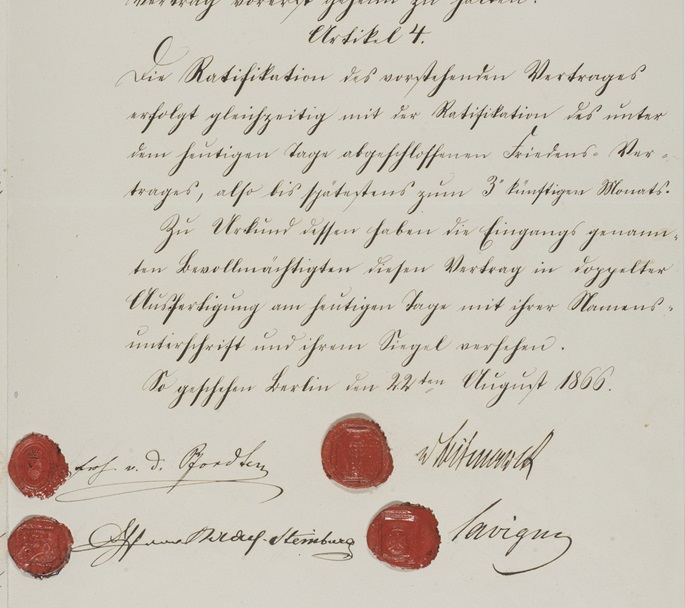 Vertrag vorerst geheim zu halten.
Artikel 4.
Die Ratifikation des vorstehenden Vertrages
erfolgt gleichzeitig mit der Ratifikation des unter
dem heutigen Tage abgeschlossenen Friedens-Ver-
trages, also bis spätestens zum 3t künftigen Monats.
Zu Urkund dessen haben die Eingangs genann-
ten Bevollmächtigten diesen Vertrag in doppelter
Ausfertigung am heutigen Tage mit ihrer Namens-
unterschrift und ihrem Siegel versehen.
So geschehen Berlin den 22ten August 1866.
Frh. v. d. Pfordten
vBismarck
Bray-Steinburg
Savigny